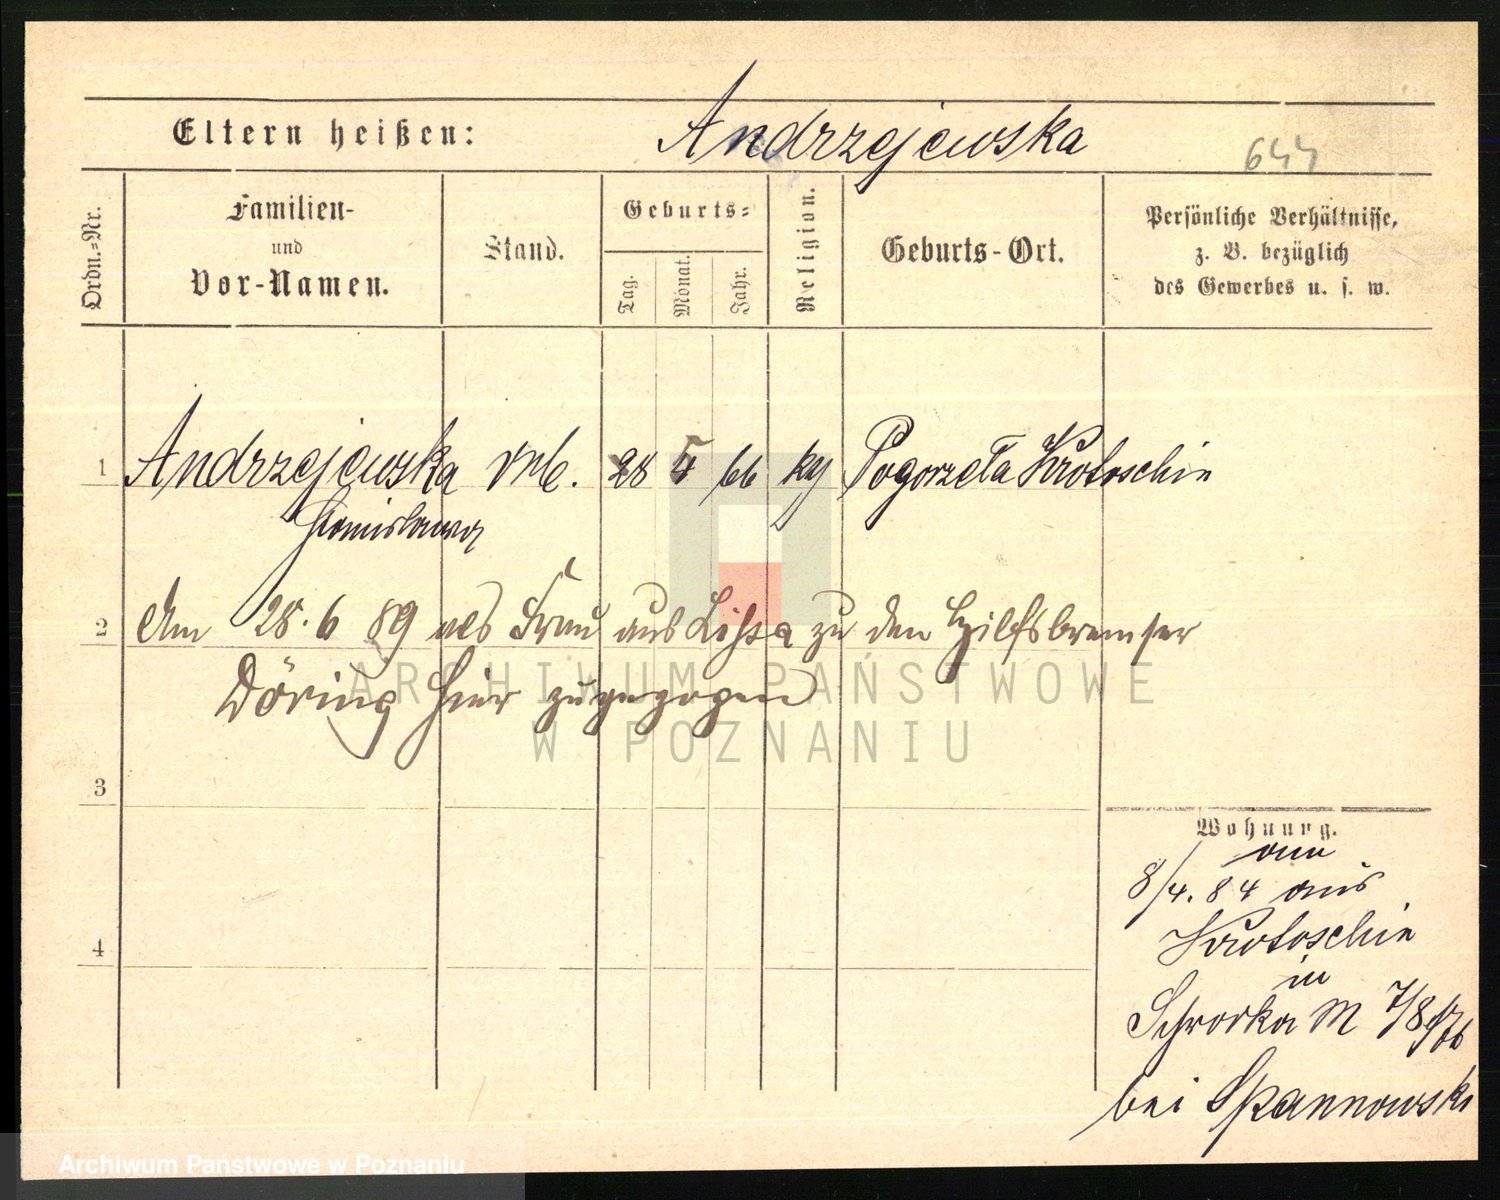 Eltern heißen: Andrzejewska 644
Ordn.=Nr.
Familien-
und
Vor-Namen.
Stand.
Geburts=
Tag.
Monat.
Jahr.
Religion.
Geburts-Ort.
Persönliche Verhältnisse,
z. B. bezüglich
des Gewerbes u. s. w.
1 Andrzejewska 28 66 Pogorzela Krotoschin
Stanislawa
2 Am 28. 6 89 als Frau aus Lissa zu den Hilfsbremser
Döring hier zugezogen
ARCHIWUM PAŃSTWOWE
W POZNANIU
3
4
Wohnung.
am
8/4. 84 aus
Krotoschin
in
Schrodka M 7/8
bei Spannowski
Archiwum Państwowe w Poznaniu